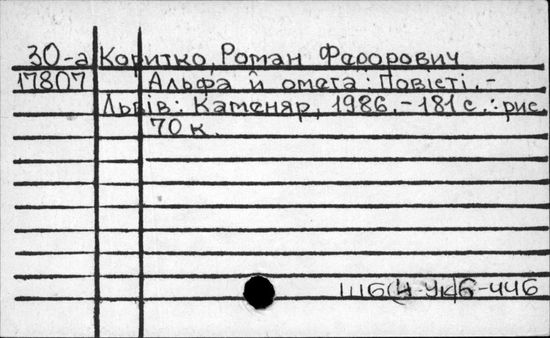 30-а Коритко, Роман Федорович
17807 Альфа й омега: Повісті. -
Львів: Каменяр, 1986. - 181 с.: рис.
70 к.
Ш6(4-Ук)6-446